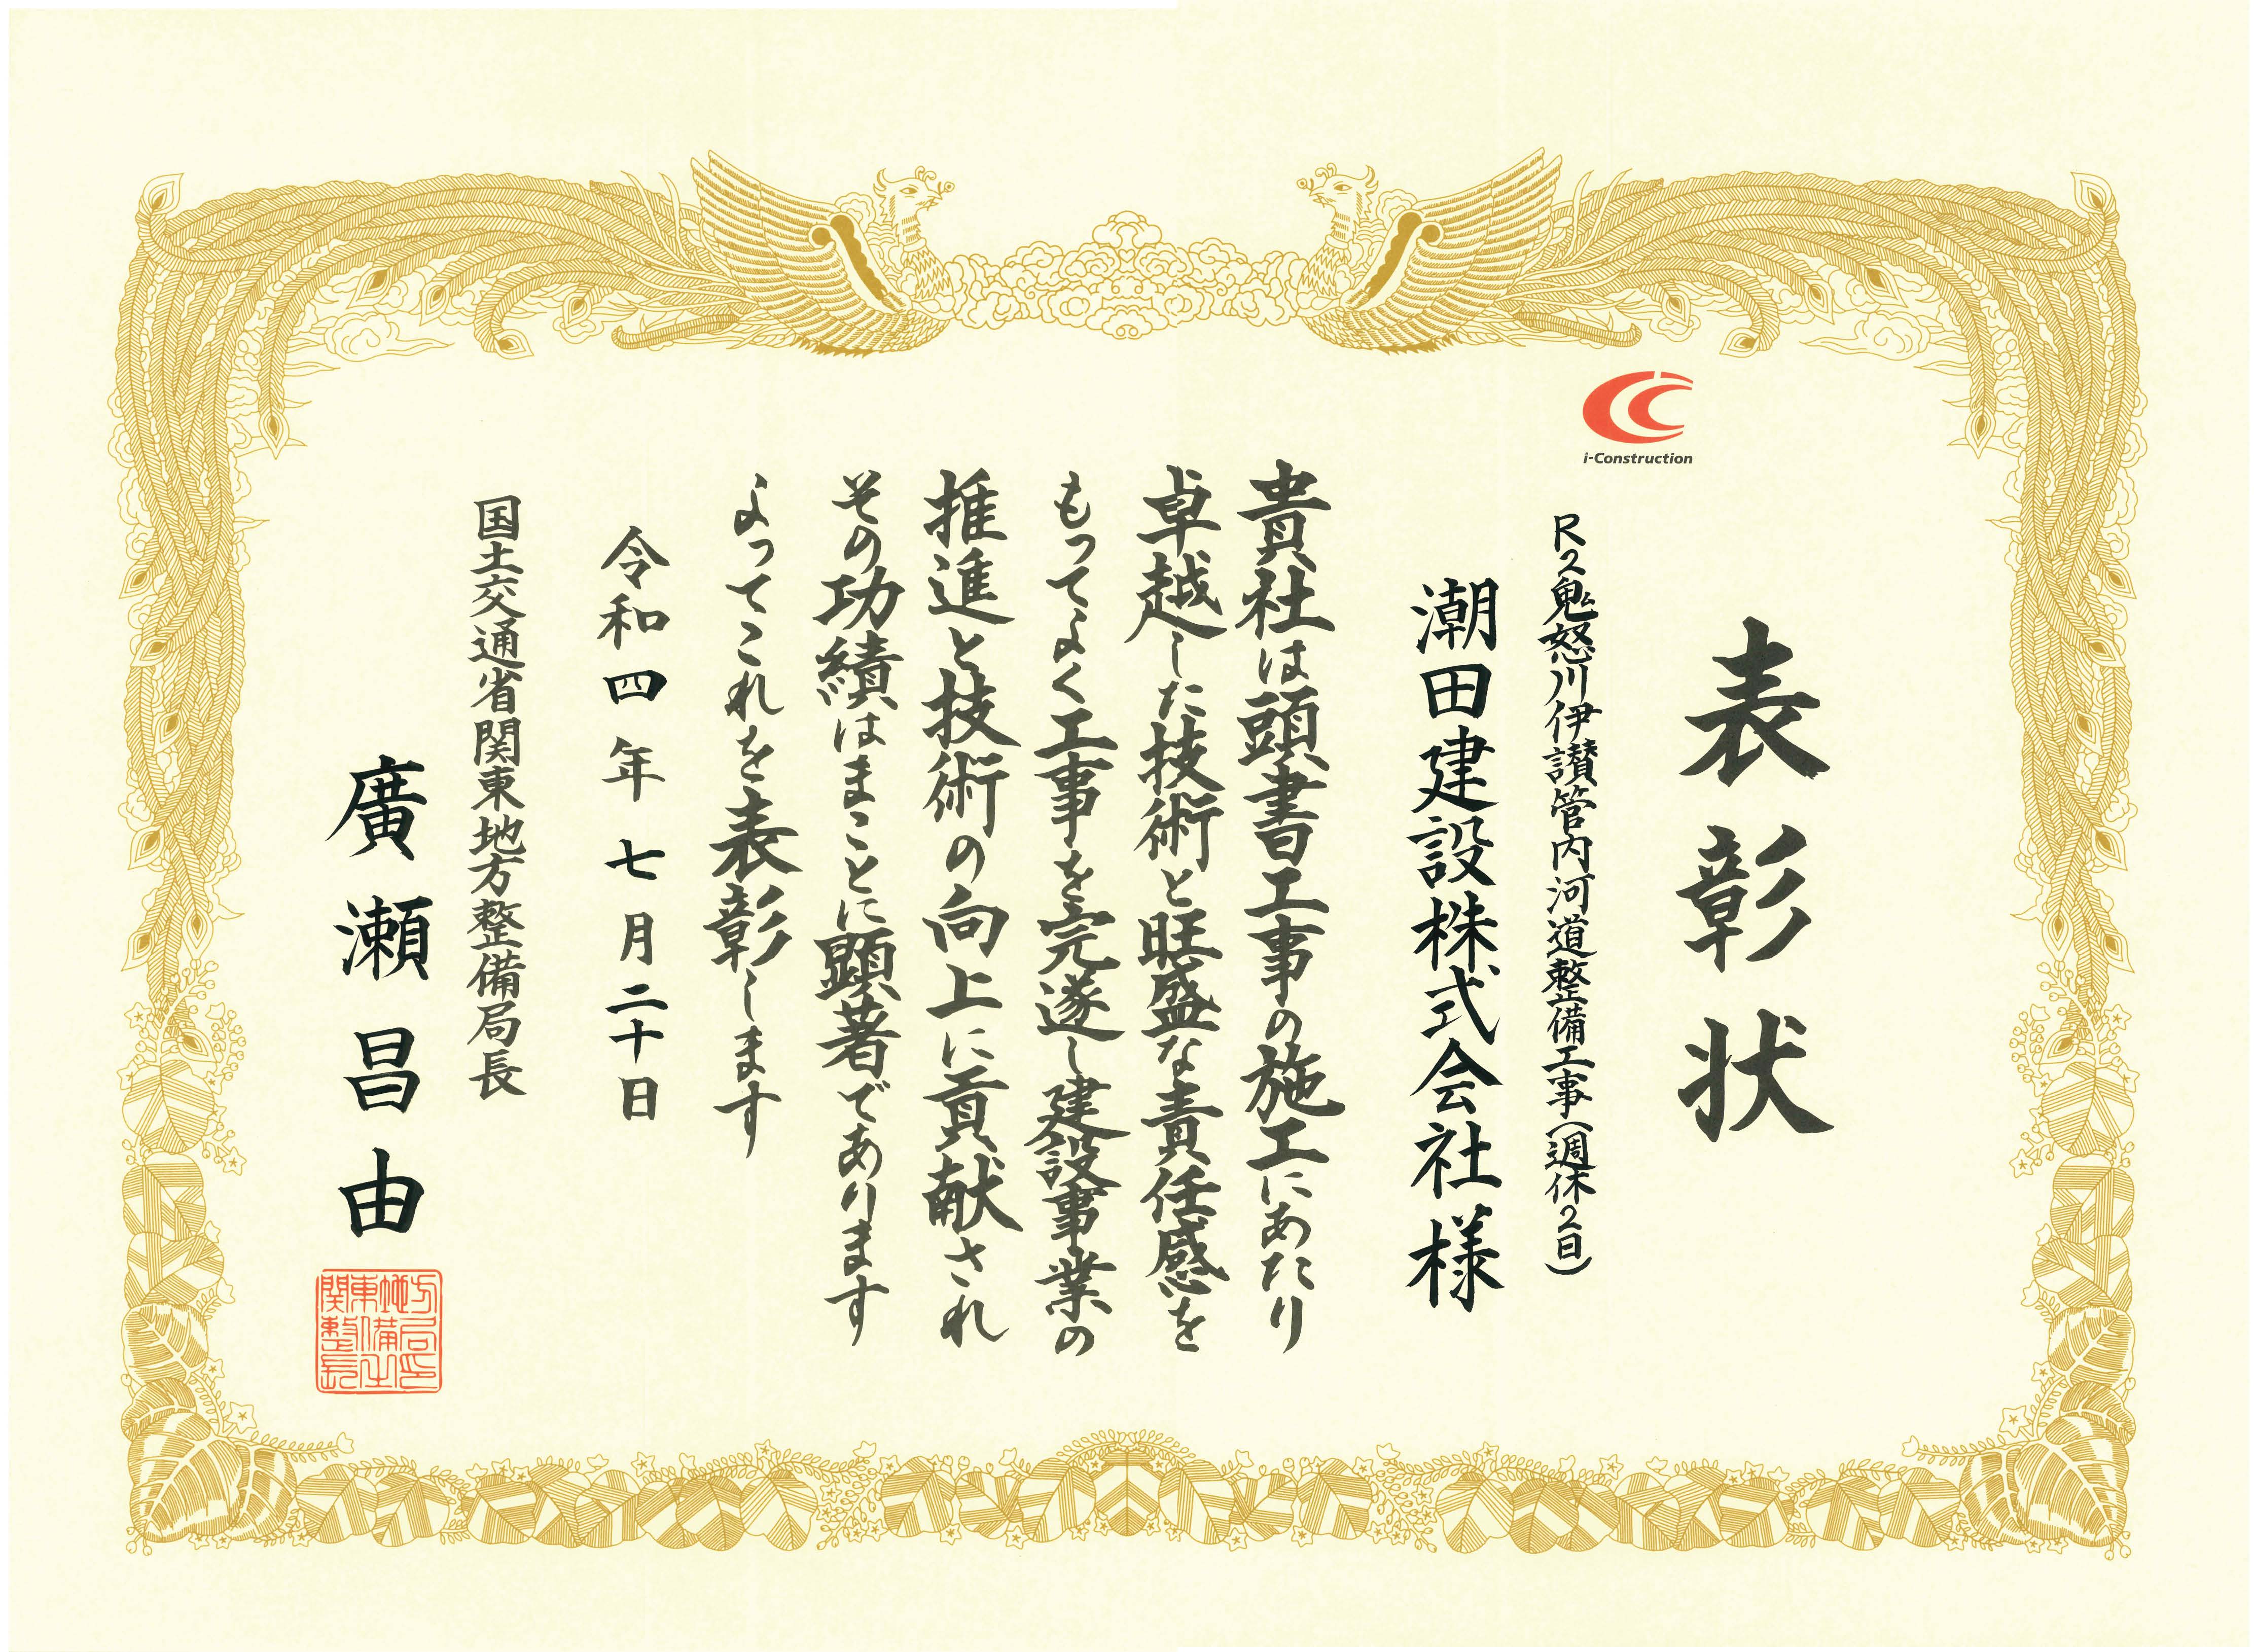 表彰状
i-Construction
R2鬼怒川伊讃管内河道整備工事(週休2日)
潮田建設株式会社様
貴社は頭書工事の施工にあたり
卓越した技術と旺盛な責任感を
もってよく工事を完遂し建設事業の
推進と技術の向上に貢献され
その功績はまことに顕著であります
よってこれを表彰します
令和四年七月二十日
国土交通省関東地方整備局長
廣瀬昌由
関東地方
整備局
長之印